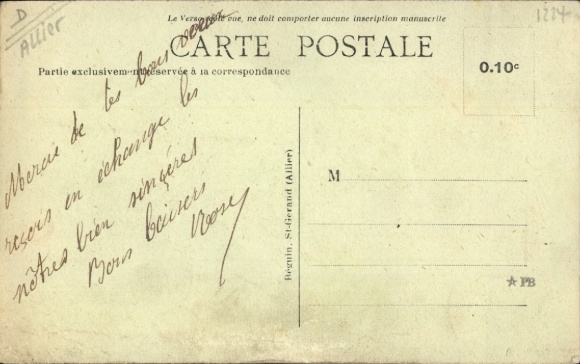 D
Allier
1224
Le Verso, côté vue, ne doit comporter aucune inscription manuscrite
CARTE POSTALE
Partie exclusivement réservée à la correspondance
0.10c
Mercie de tes bons voeux
reçois en échange les
nôtres bien sinçéres
Bons baisers
Rose
Béguin, St-Gerand (Allier)
M
PB